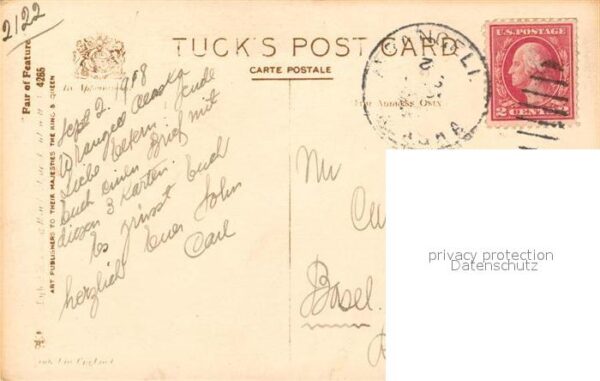 2122
Pair of Feature
4265
By Appointment
TUCK'S POST CARD
CARTE POSTALE
For Address Only
ART PUBLISHERS TO THEIR MAJESTIES THE KING & QUEEN
U.S. POSTAGE
2 CENTS 2
Sept 2. 1908
Wrangell Alaska
Liebe Eltern! Sende
Euch einen Brief mit
diesen 3 Karten.
Es grüsst Euch
herzlich Euer Sohn
Carl
Mr
Basel.
privacy protection
Datenschutz